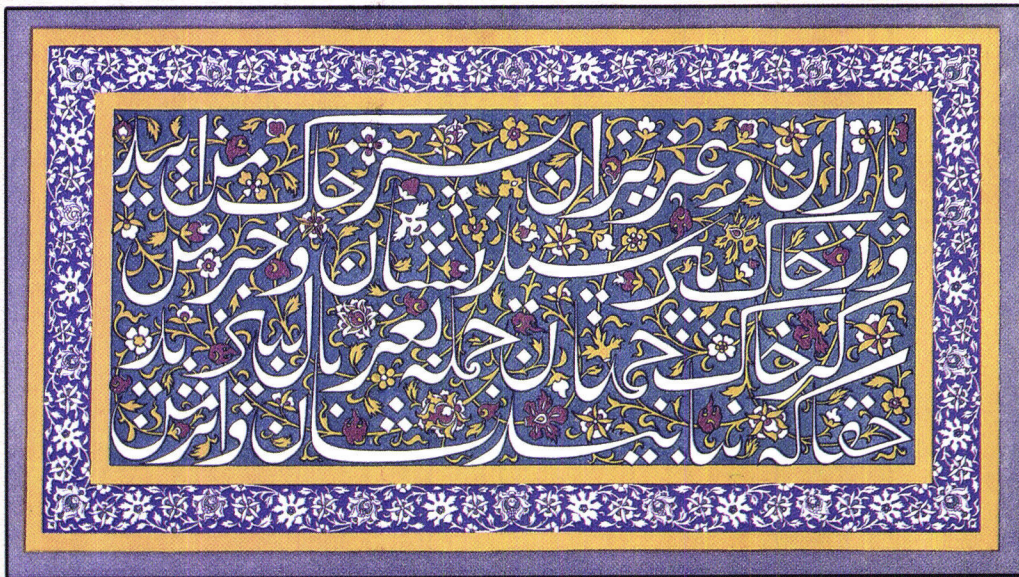 یاران و عزیزان بسر خاک من آیید
وز خاک بپرسید نشان و خبر من
گر خاک جهان جمله بغربال ببیزید
حقا که نیابید نشان و اثر من